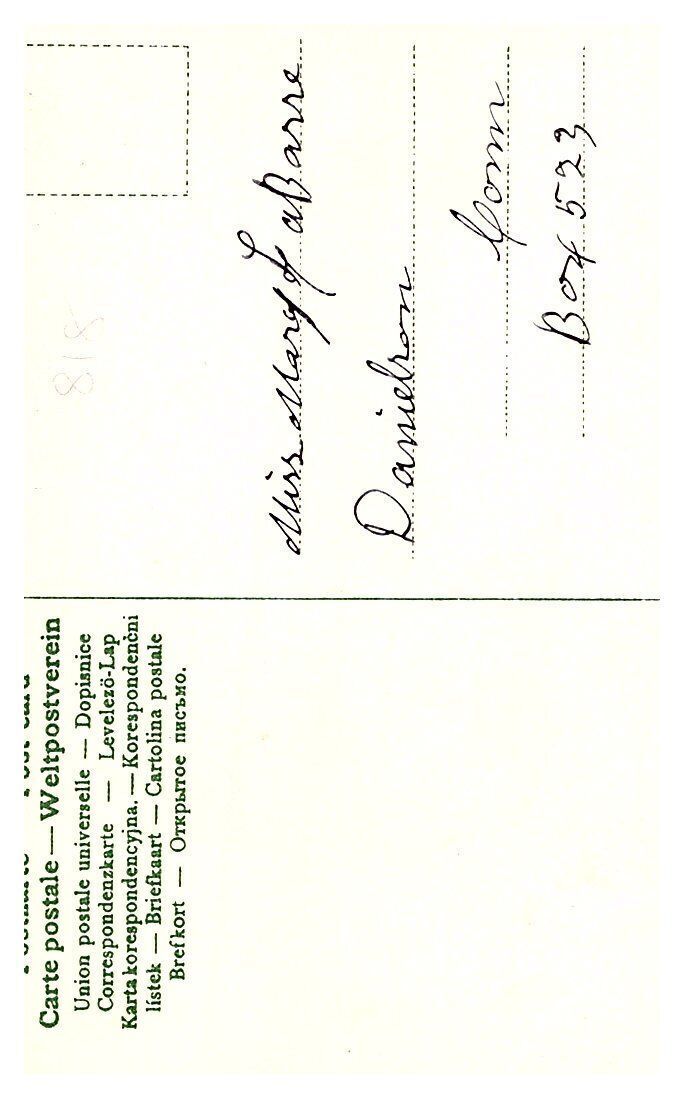 Carte postale — Weltpostverein
Union postale universelle — Dopisnice
Correspondenzkarte — Levelező-Lap
Karta korespondencyjna. — Korespondenční
lístek — Briefkaart — Cartolina postale
Brefkort — Открытое письмо.
818
Miss Mary LaBarre
Danielson
Conn
Box 523